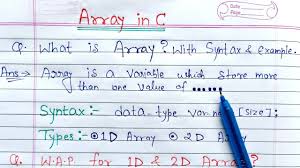 Array in C
Q. What is Array? With Syntax & Example.
Ans → Array is a variable which store more
than one value of ......
Syntax:- data-type var name [size];
Types :- ⊙ 1D Array ⊙ 2D Array
Q. W.A.P for 1D & 2D Array?